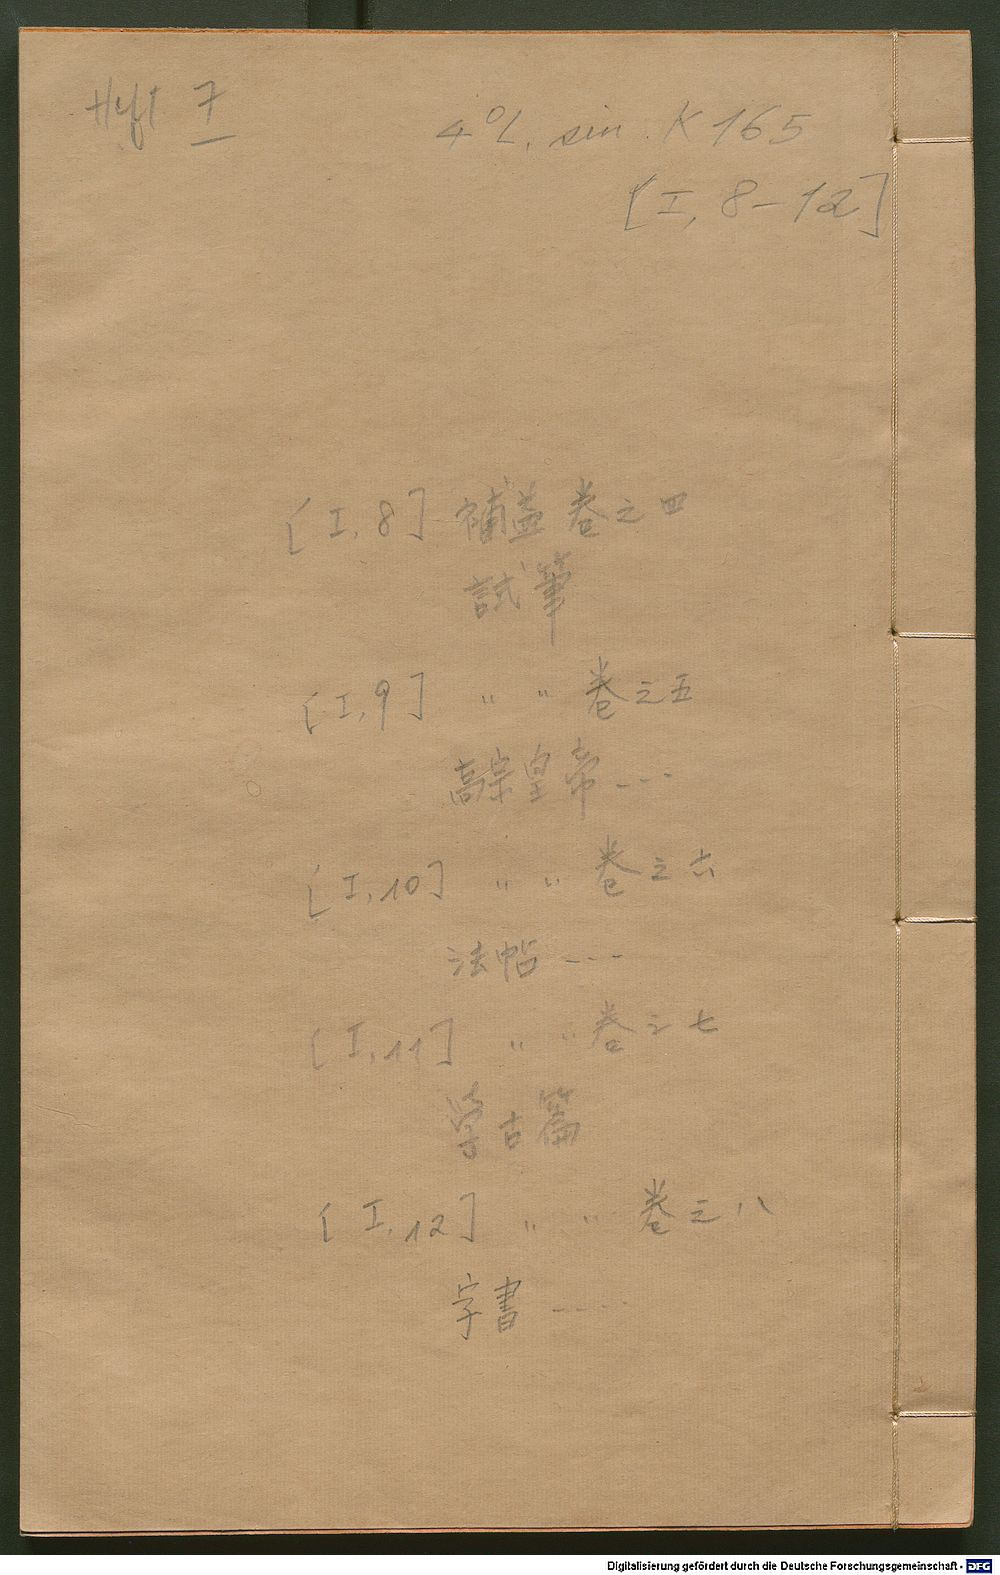 Heft 7
4° L. sin. K 165
[I, 8-12]
[I, 8] 補益 卷之四
試筆
[I, 9] " " 卷之五
高宗皇帝 ---
[I, 10] " " 卷之六
法帖 ---
[I, 11] " " 卷之七
学古篇
[I, 12] " " 卷之八
字書 ----
Digitalisierung gefördert durch die Deutsche Forschungsgemeinschaft - DFG